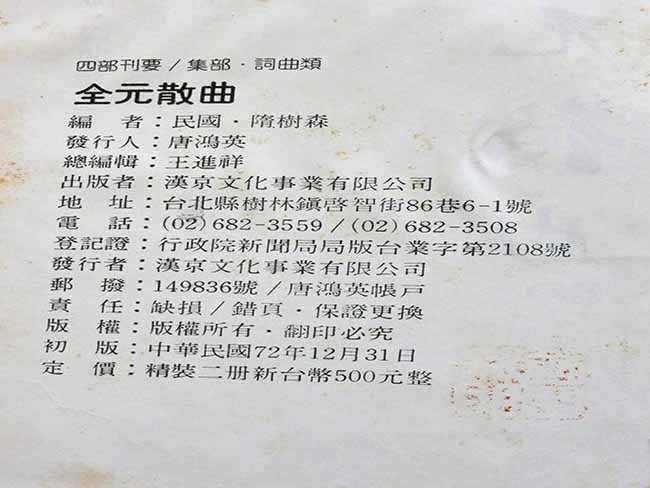 四部刊要/集部·詞曲類
全元散曲
編 者：民國·隋樹森
發行人：唐鴻英
總編輯：王進祥
出版者：漢京文化事業有限公司
地 址：台北縣樹林鎮啓智街86巷6-1號
電 話：(02)682-3559/(02)682-3508
登記證：行政院新聞局局版台業字第2108號
發行者：漢京文化事業有限公司
郵 撥：149836號/唐鴻英帳戶
責 任：缺損/錯頁·保證更換
版 權：版權所有·翻印必究
初 版：中華民國72年12月31日
定 價：精裝二册新台幣500元整